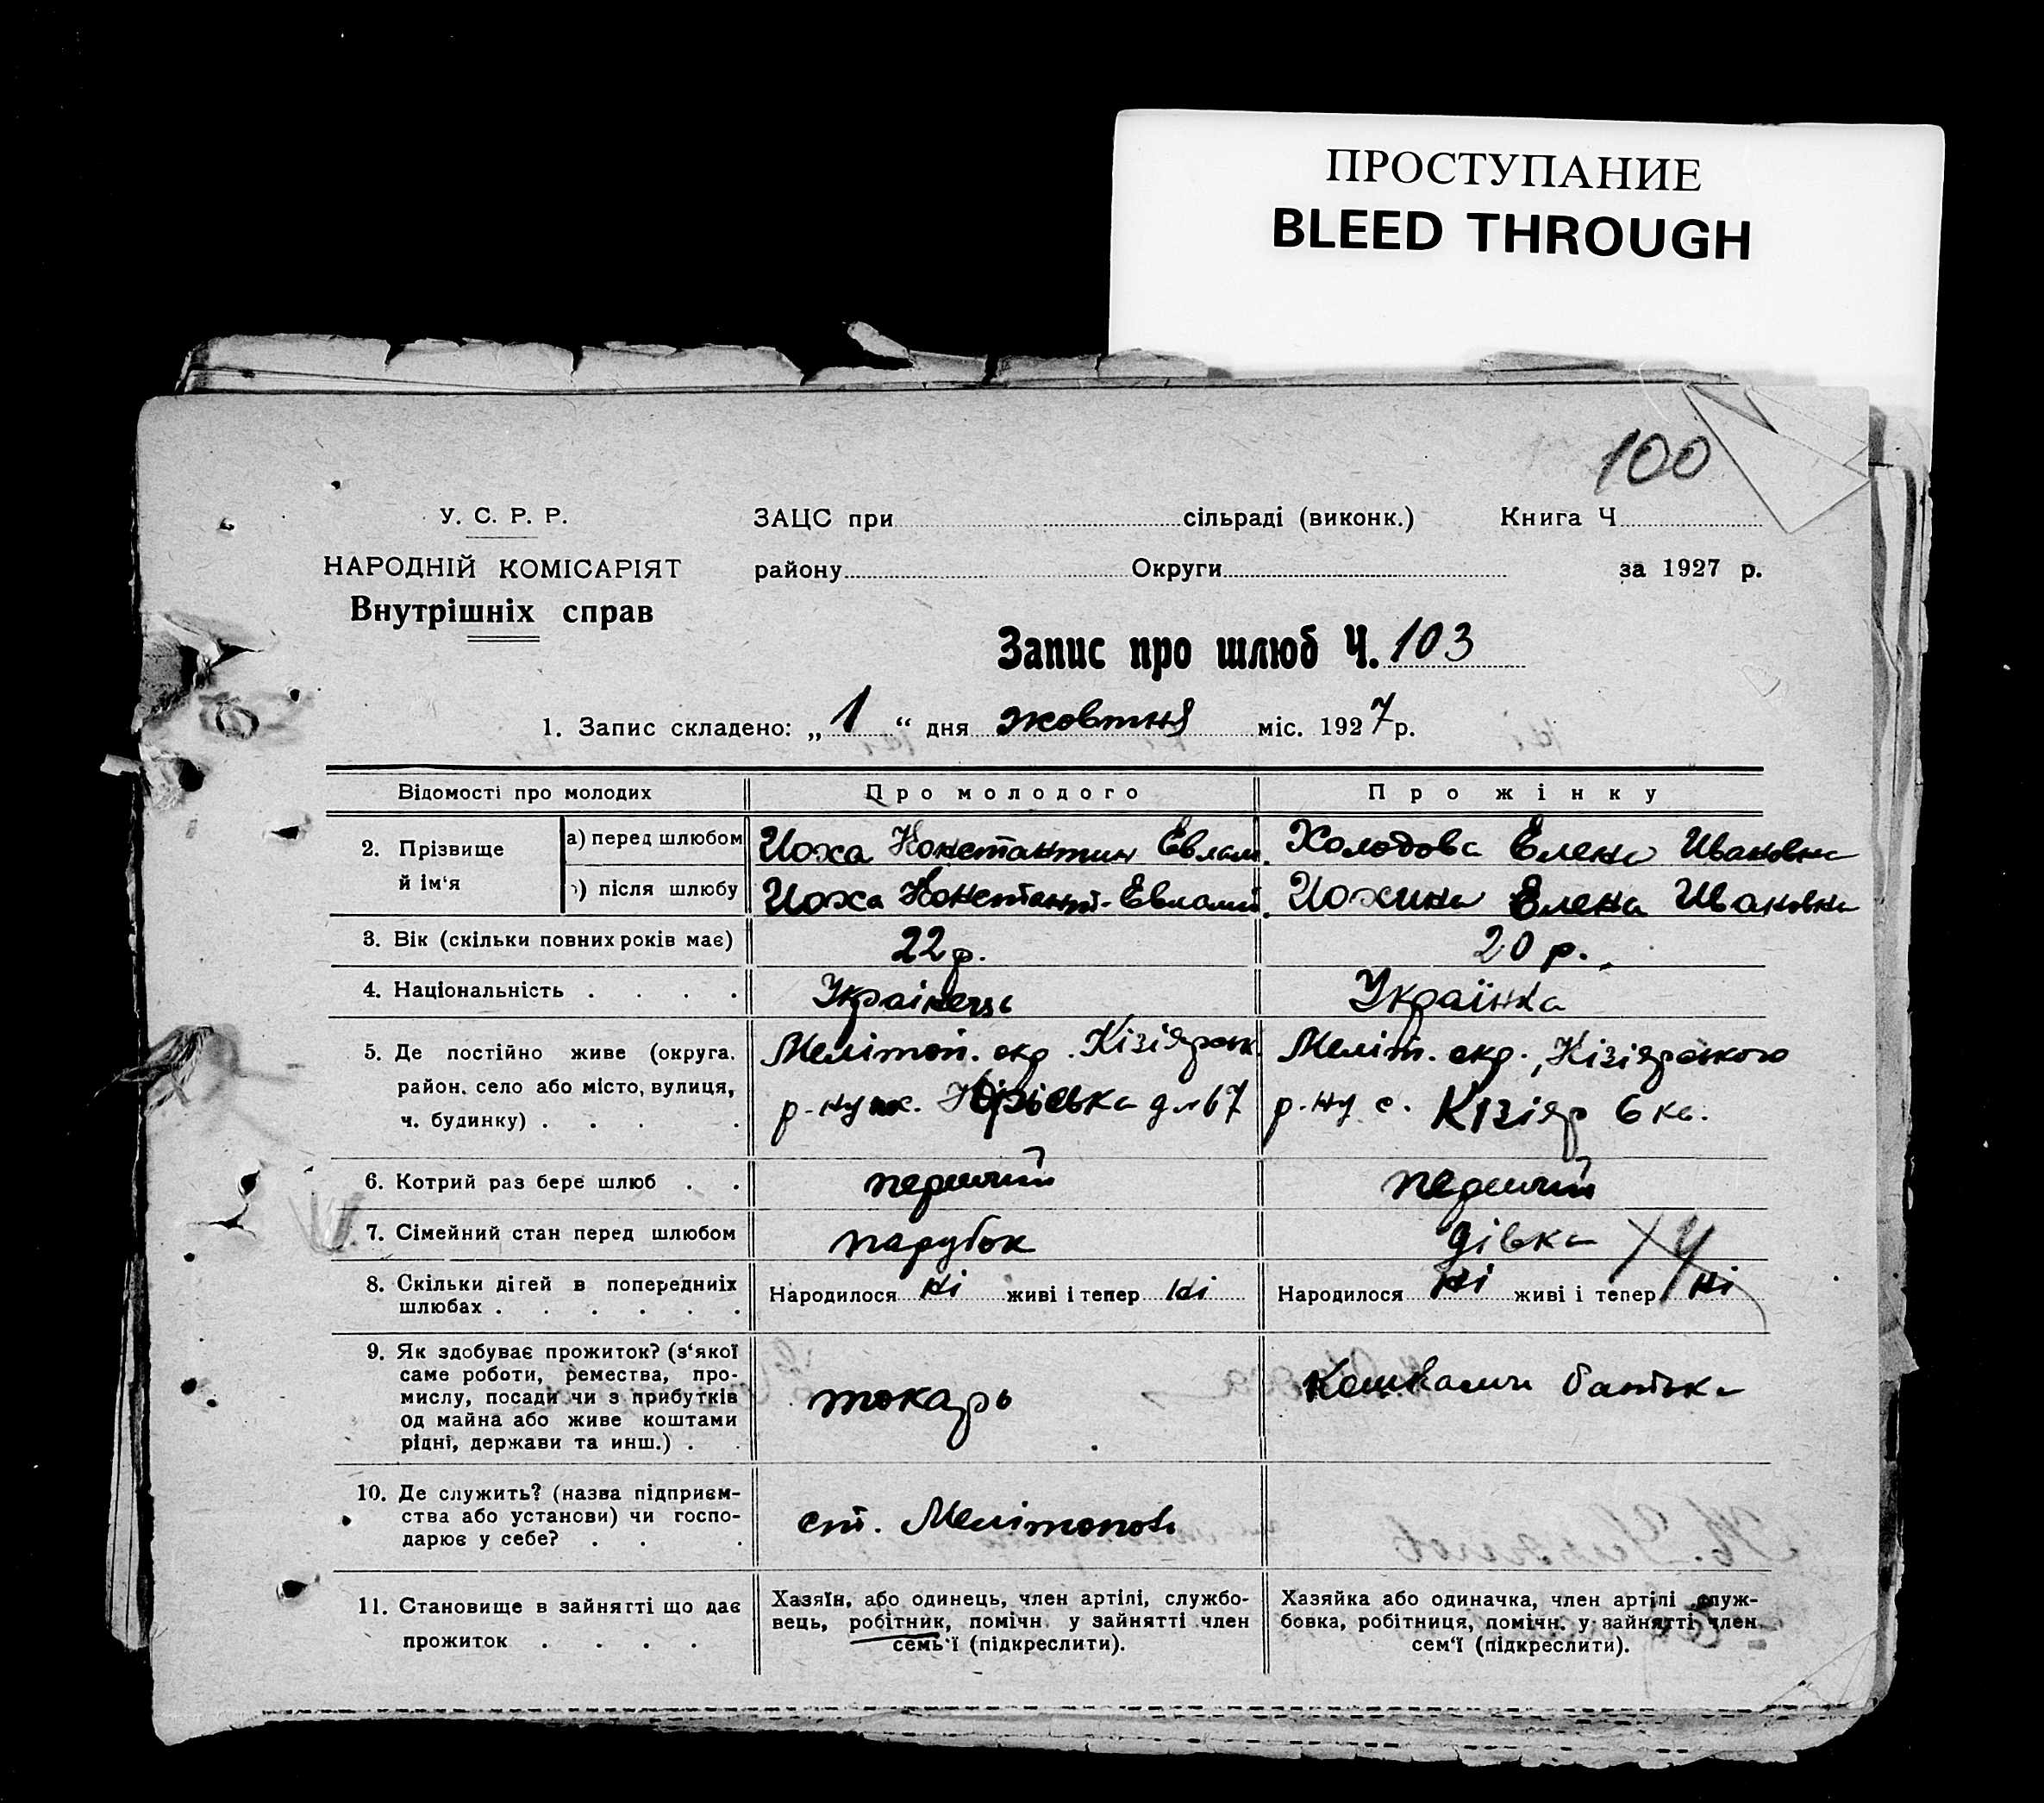 ПРОСТУПАНИЕ
BLEED THROUGH
100
У. С. Р. Р.
НАРОДНІЙ КОМІСАРІЯТ
Внутрішніх справ
ЗАЦС при сільраді (виконк.) Книга Ч
району Округи за 1927 р.
Запис про шлюб Ч. 103
1. Запис складено: „ 1 “ дня жовтня міс. 1927 р.
Відомості про молодих
Про молодого
Про жінку
2. Прізвище й ім‘я
а) перед шлюбом
Йоха Константин Евлам.
Холодова Елена Ивановна
) після шлюбу
Йоха Констант. Евламп.
Йохина Елена Ивановна
3. Вік (скільки повних років має)
22 р.
20 р.
4. Національність . . . .
Українець
Українка
5. Де постійно живе (округа,
район, село або місто, вулиця,
ч. будинку) . . . .
Мелітоп. окр. Кізіярськ.
р-ну д. № 67
Меліт. окр., Кізіярського
р-ну с. Кізіяр 6 кв.
6. Котрий раз бере шлюб . .
перший
перший
7. Сімейний стан перед шлюбом
парубок
дівка
8. Скільки дітей в попередніх
шлюбах . . . . . .
Народилося ні живі і тепер ні
Народилося ні живі і тепер ні
9. Як здобуває прожиток? (з‘якої
саме роботи, ремества, про-
мислу, посади чи з прибутків
од майна або живе коштами
рідні, держави та инш.) . .
токарь
Кошками батька
10. Де служить? (назва підприєм-
ства або установи) чи госпо-
дарює у себе? . . .
ст. Мелітополь
11. Становище в зайнятті що дає
прожиток . . . .
Хазяїн, або одинець, член артілі, службо-
вець, робітник, помічн. у зайнятті член
семь‘ї (підкреслити).
Хазяйка або одиначка, член артілі служ-
бовка, робітниця, помічн. у зайнятті член
сем‘ї (підкреслити).